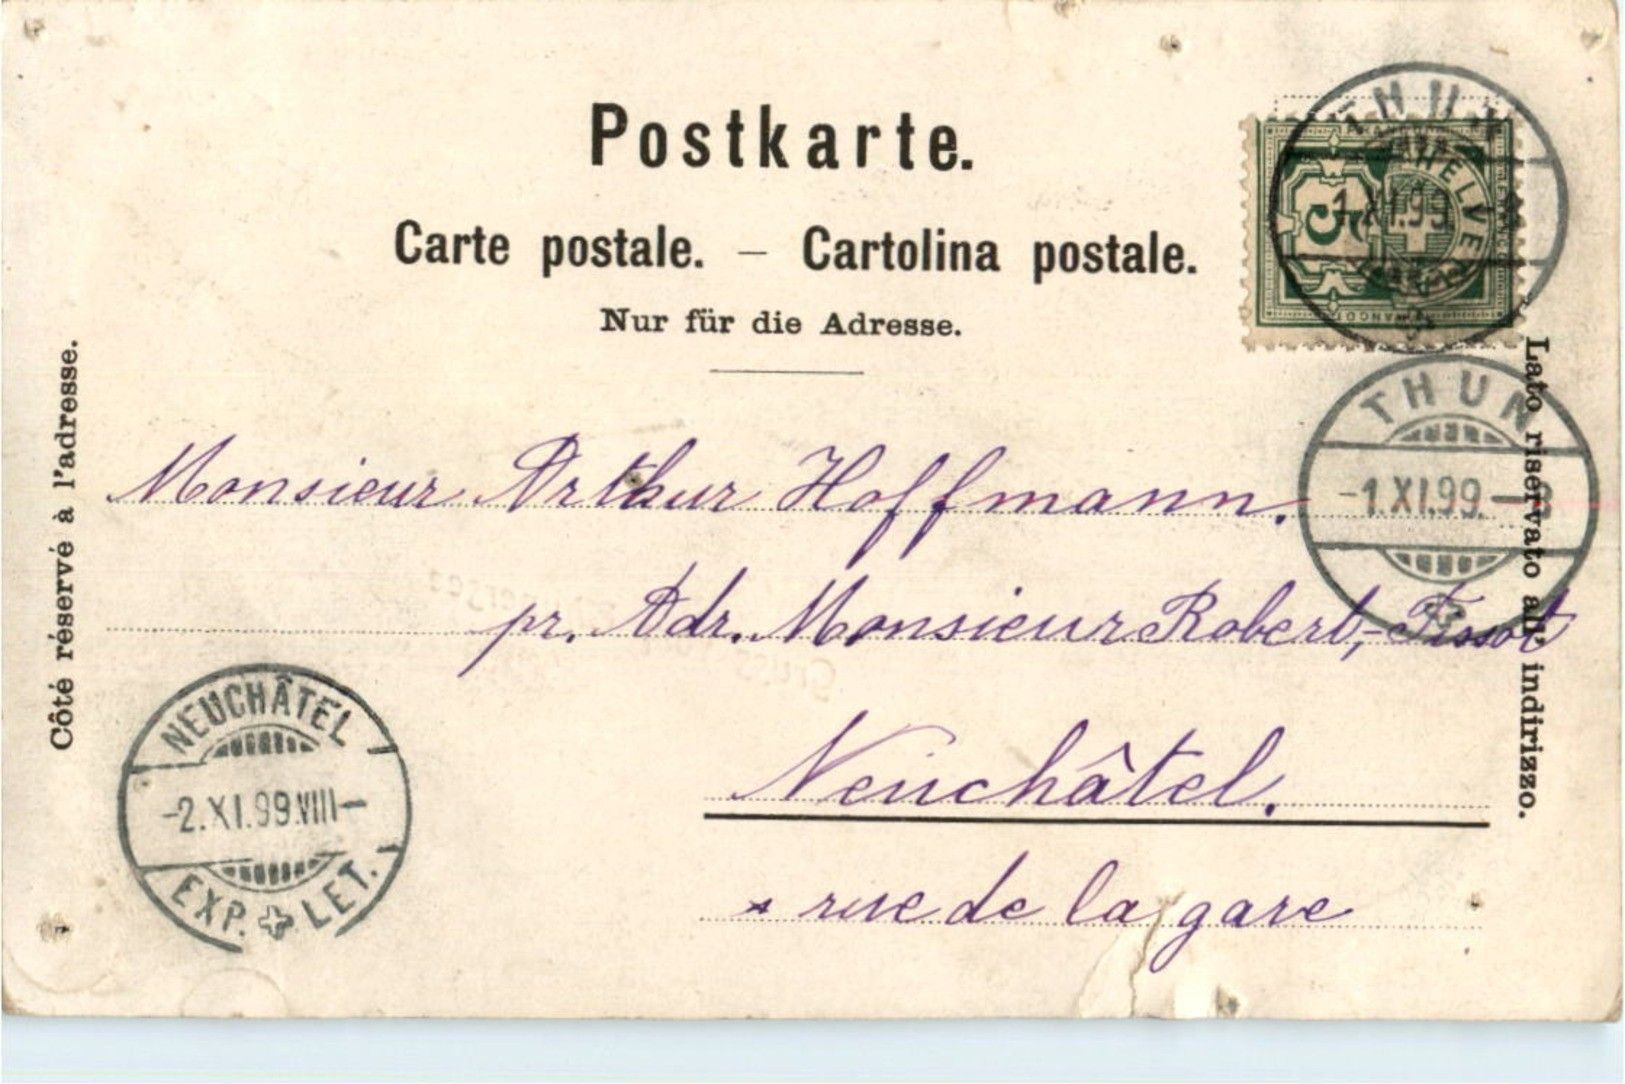 Postkarte.
Carte postale. — Cartolina postale.
Nur für die Adresse.
Côté réservé à l'adresse.
Lato riservato all' indirizzo.
HELVE
5
1.XI.99.
THUN
-1.XI.99.-
Monsieur Arthur Hoffmann.
pr. Adr. Monsieur Robert,-Tissot
Neuchâtel.
rue de la gare
NEUCHÂTEL
-2.XI.99.VIII-
EXP. LET.